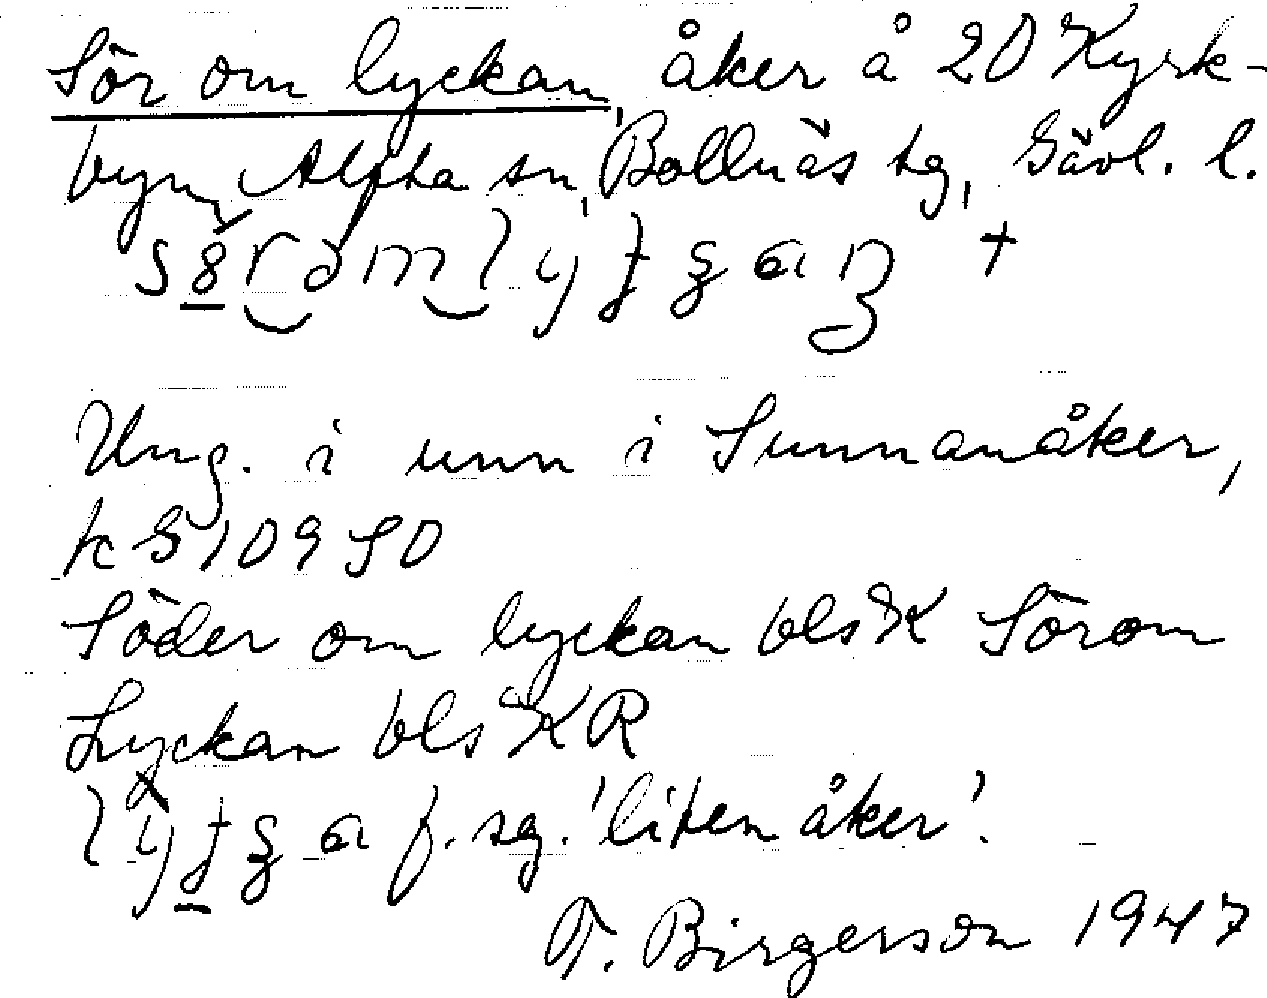 Sör om lyckan, åker å 20 Kyrk-
byn, Alfta sn, Bollnäs hg, Gävl. l.
Ung. i unn i Sunnanåker,
k G 109 SO
Söder om lyckan bls K Sörom
Lyckan bls KR
f. sg. 'liten åker'.
T. Birgerson 1947